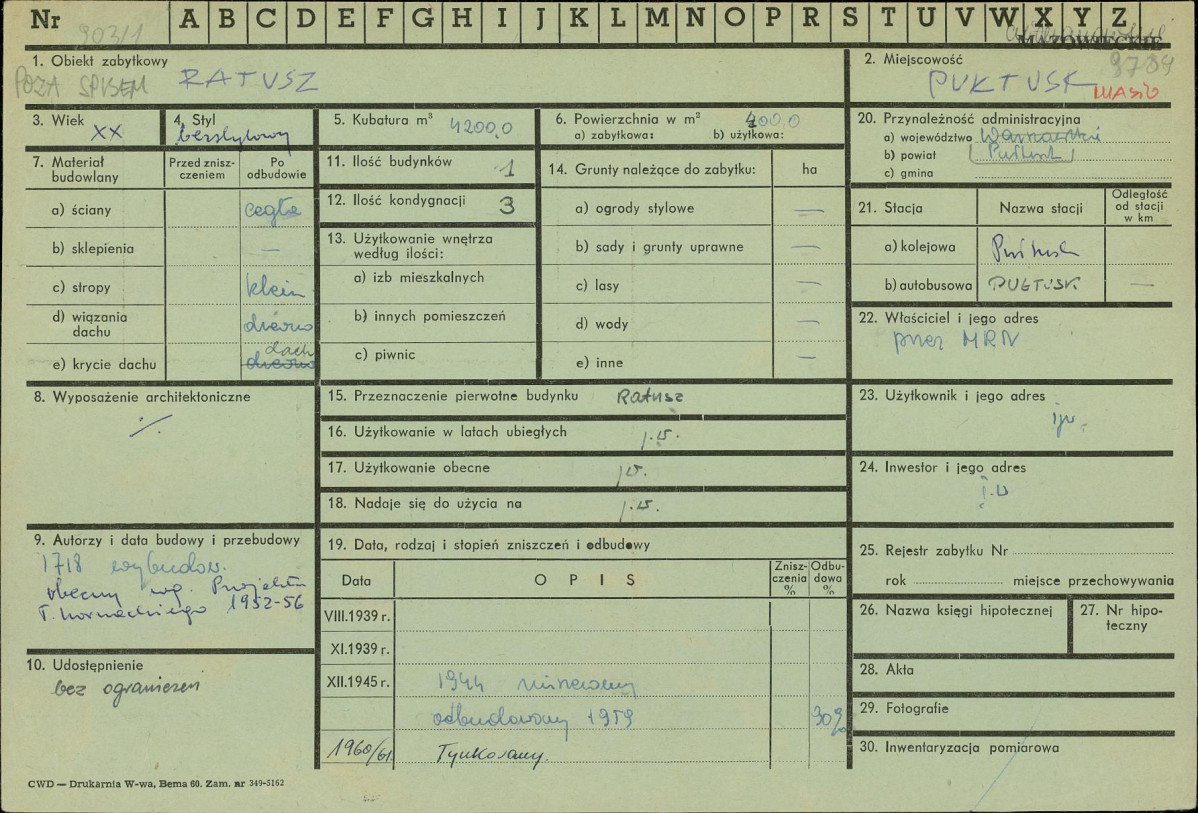 Nr A B C D E F G H I J K L M N O P R S T U V W X Y Z
903/1
MAZOWIECKIE
9789
1. Obiekt zabytkowy
POZA SPISEM RATUSZ
2. Miejscowość
PUŁTUSK MIASTO
3. Wiek XX
4. Styl bezstylowy
5. Kubatura m³ 4200,0
6. Powierzchnia w m² 400,0
a) zabytkowa: b) użytkowa:
20. Przynależność administracyjna
a) województwo Warszawskie
b) powiat Pułtusk
c) gmina
7. Materiał budowlany
Przed zniszczeniem
Po odbudowie
a) ściany cegła
b) sklepienia —
c) stropy klein
d) wiązania dachu drewno
e) krycie dachu dach drewno
11. Ilość budynków 1
12. Ilość kondygnacji 3
13. Użytkowanie wnętrza
według ilości:
a) izb mieszkalnych
b) innych pomieszczeń
c) piwnic
14. Grunty należące do zabytku: ha
a) ogrody stylowe —
b) sady i grunty uprawne —
c) lasy —
d) wody —
e) inne —
21. Stacja Nazwa stacji Odległość od stacji w km
a) kolejowa Pułtusk
b) autobusowa PUŁTUSK —
22. Właściciel i jego adres
prez MRN
8. Wyposażenie architektoniczne
./.
15. Przeznaczenie pierwotne budynku Ratusz
16. Użytkowanie w latach ubiegłych j.w.
17. Użytkowanie obecne j.w.
18. Nadaje się do użycia na j.w.
23. Użytkownik i jego adres
jw.
24. Inwestor i jego adres
j.w
9. Autorzy i data budowy i przebudowy
1718 wybudow.
obecny wg. Projektu
T. Kornackiego 1952-56
10. Udostępnienie
bez ograniczeń
19. Data, rodzaj i stopień zniszczeń i odbudowy
Data OPIS Zniszczenia % Odbudowa %
VIII.1939 r.
XI.1939 r.
XII.1945 r. 1944 zniszczony
odbudowany 1959 30%
1960/61. Tynkowany.
25. Rejestr zabytku Nr
rok miejsce przechowywania
26. Nazwa księgi hipotecznej
27. Nr hipoteczny
28. Akta
29. Fotografie
30. Inwentaryzacja pomiarowa
CWD — Drukarnia W-wa, Bema 60. Zam. nr 349-5162